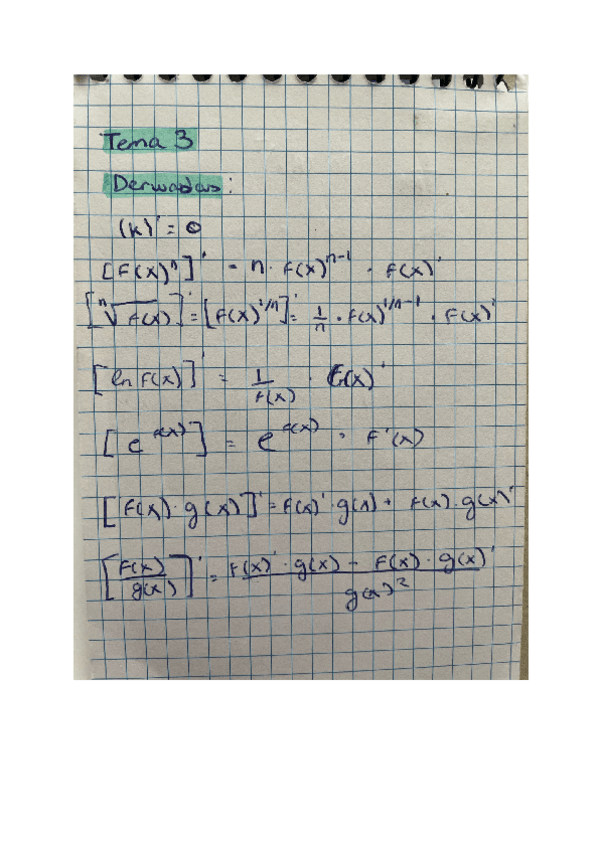 Tema 3
Derivadas:
(k)' = 0
[F(x)ⁿ]' = n · F(x)ⁿ⁻¹ · F(x)'
[ⁿ√F(x)]' = [F(x)^1/n]' = 1/n · F(x)^1/n-1 · F(x)'
[ln F(x)]' = 1/F(x) · F(x)'
[e^F(x)] = e^F(x) · F'(x)
[F(x) · g(x)]' = F(x)' · g(x) + F(x) · g(x)'
[F(x)/g(x)]' = F(x)' · g(x) - F(x) · g(x)' / g(x)²